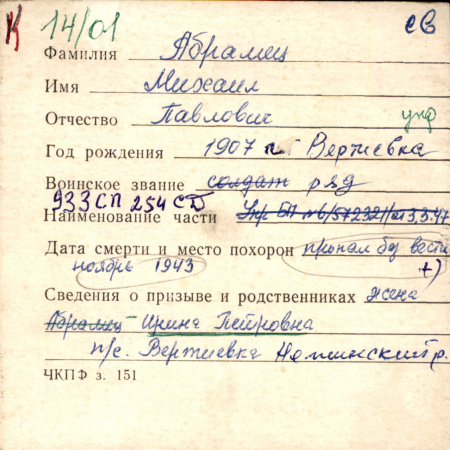 К 14/01 св
Фамилия Абрамец
Имя Михаил
Отчество Павлович упд
Год рождения 1907 г. Вертиевка
Воинское звание солдат ряд
933 СП 254 СД
Наименование части Укр БП №6/572321/ от 3.3.47
Дата смерти и место похорон пропал без вести
ноябрь 1943 +)
Сведения о призыве и родственниках жена
Абрамец Ирина Петровна
п/с. Вертиевка Нежинский р.
ЧКПФ з. 151